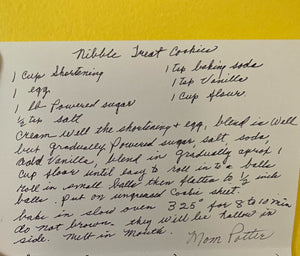 Nibble Treat Cookies
1 Cup Shortening
1 egg
1 lb Powered sugar
½ tsp salt
1 tsp baking soda
1 tsp Vanilla
1 Cup flour
Cream well the shortening & egg, blend in well
but gradually Powered sugar salt, soda
add Vanilla, blend in gradually aprox 1
Cup flour until easy to roll in balls
roll in small balls then flatten to ½ inch
balls. put on ungreased Cookie sheet.
bake in slow oven 325° for 8 to 10 min
do not brown. they will be hallow in
side. Melt in Mouth.
Mom Potter